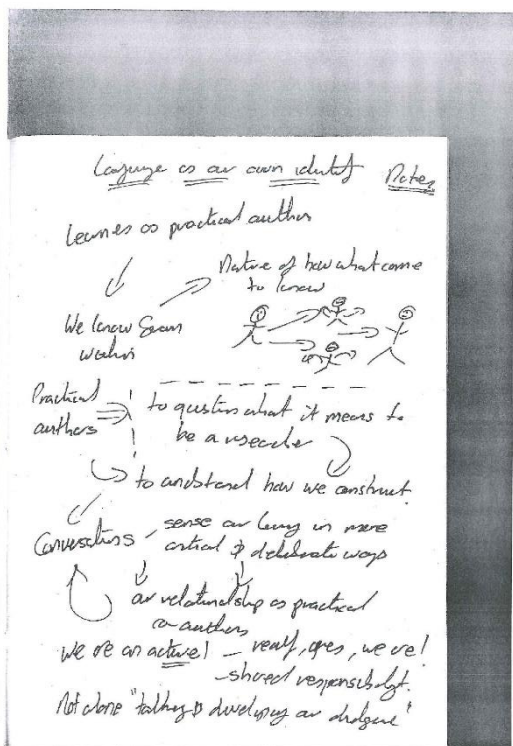 Language as our own identity Notes
Learners as practical authors
Nature of how what come
to know
We know from
within
Practical
authors
to question what it means to
be a researcher
to understand how we construct
Conversations - sense our being in more
critical & deliberate ways
our relationship as practical
authors
We are an active! - really, yes, we are!
- shared responsibility.
Not alone "talking & developing our dialogue"